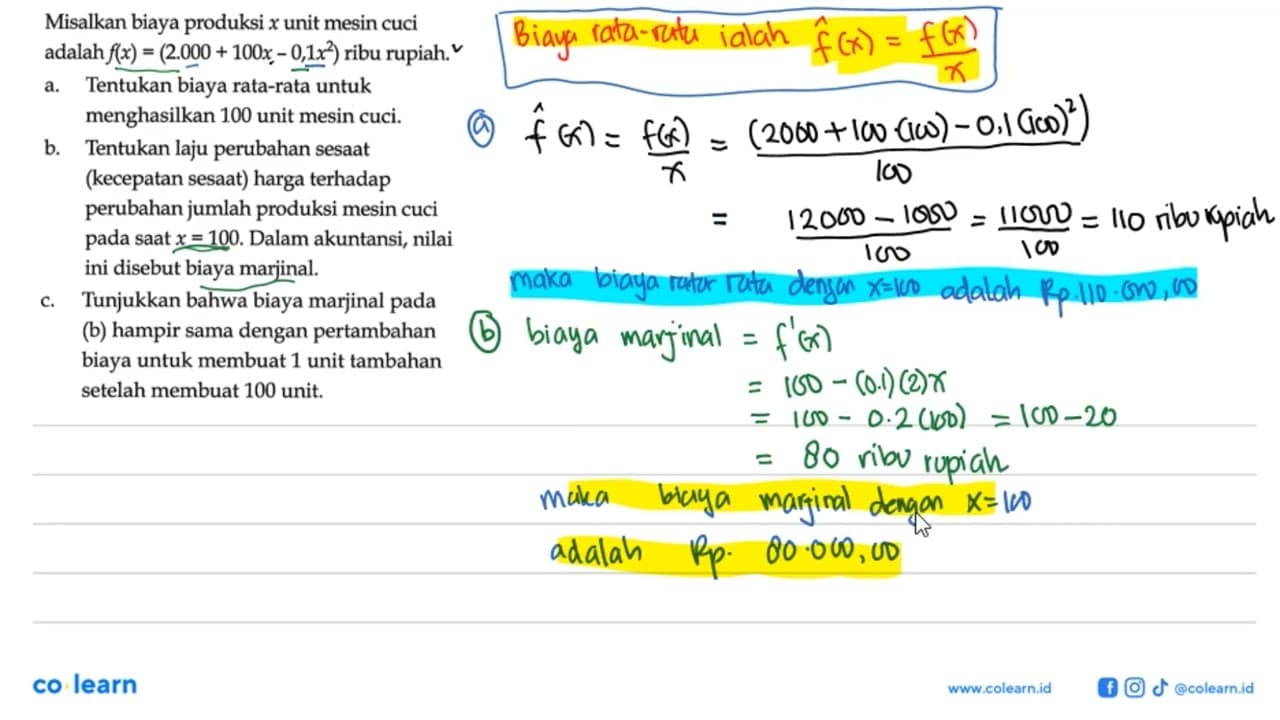 Misalkan biaya produksi x unit mesin cuci
adalah f(x) = (2.000 + 100x – 0,1x²) ribu rupiah.
a. Tentukan biaya rata-rata untuk
menghasilkan 100 unit mesin cuci.
b. Tentukan laju perubahan sesaat
(kecepatan sesaat) harga terhadap
perubahan jumlah produksi mesin cuci
pada saat x = 100. Dalam akuntansi, nilai
ini disebut biaya marjinal.
c. Tunjukkan bahwa biaya marjinal pada
(b) hampir sama dengan pertambahan
biaya untuk membuat 1 unit tambahan
setelah membuat 100 unit.
Biaya rata-rata ialah f̂(x) = f(x)/x
(a) f̂(x) = f(x)/x = (2000 + 100·(100) – 0,1(100)²)/100
= 12000 – 1000/100 = 11000/100 = 110 ribu rupiah
maka biaya rata-rata dengan x=100 adalah Rp.110.000,00
(b) biaya marjinal = f'(x)
= 100 – (0.1)(2)x
= 100 – 0.2(100) = 100 – 20
= 80 ribu rupiah
maka biaya marjinal dengan x=100
adalah Rp. 80.000,00
co learn
www.colearn.id
@colearn.id